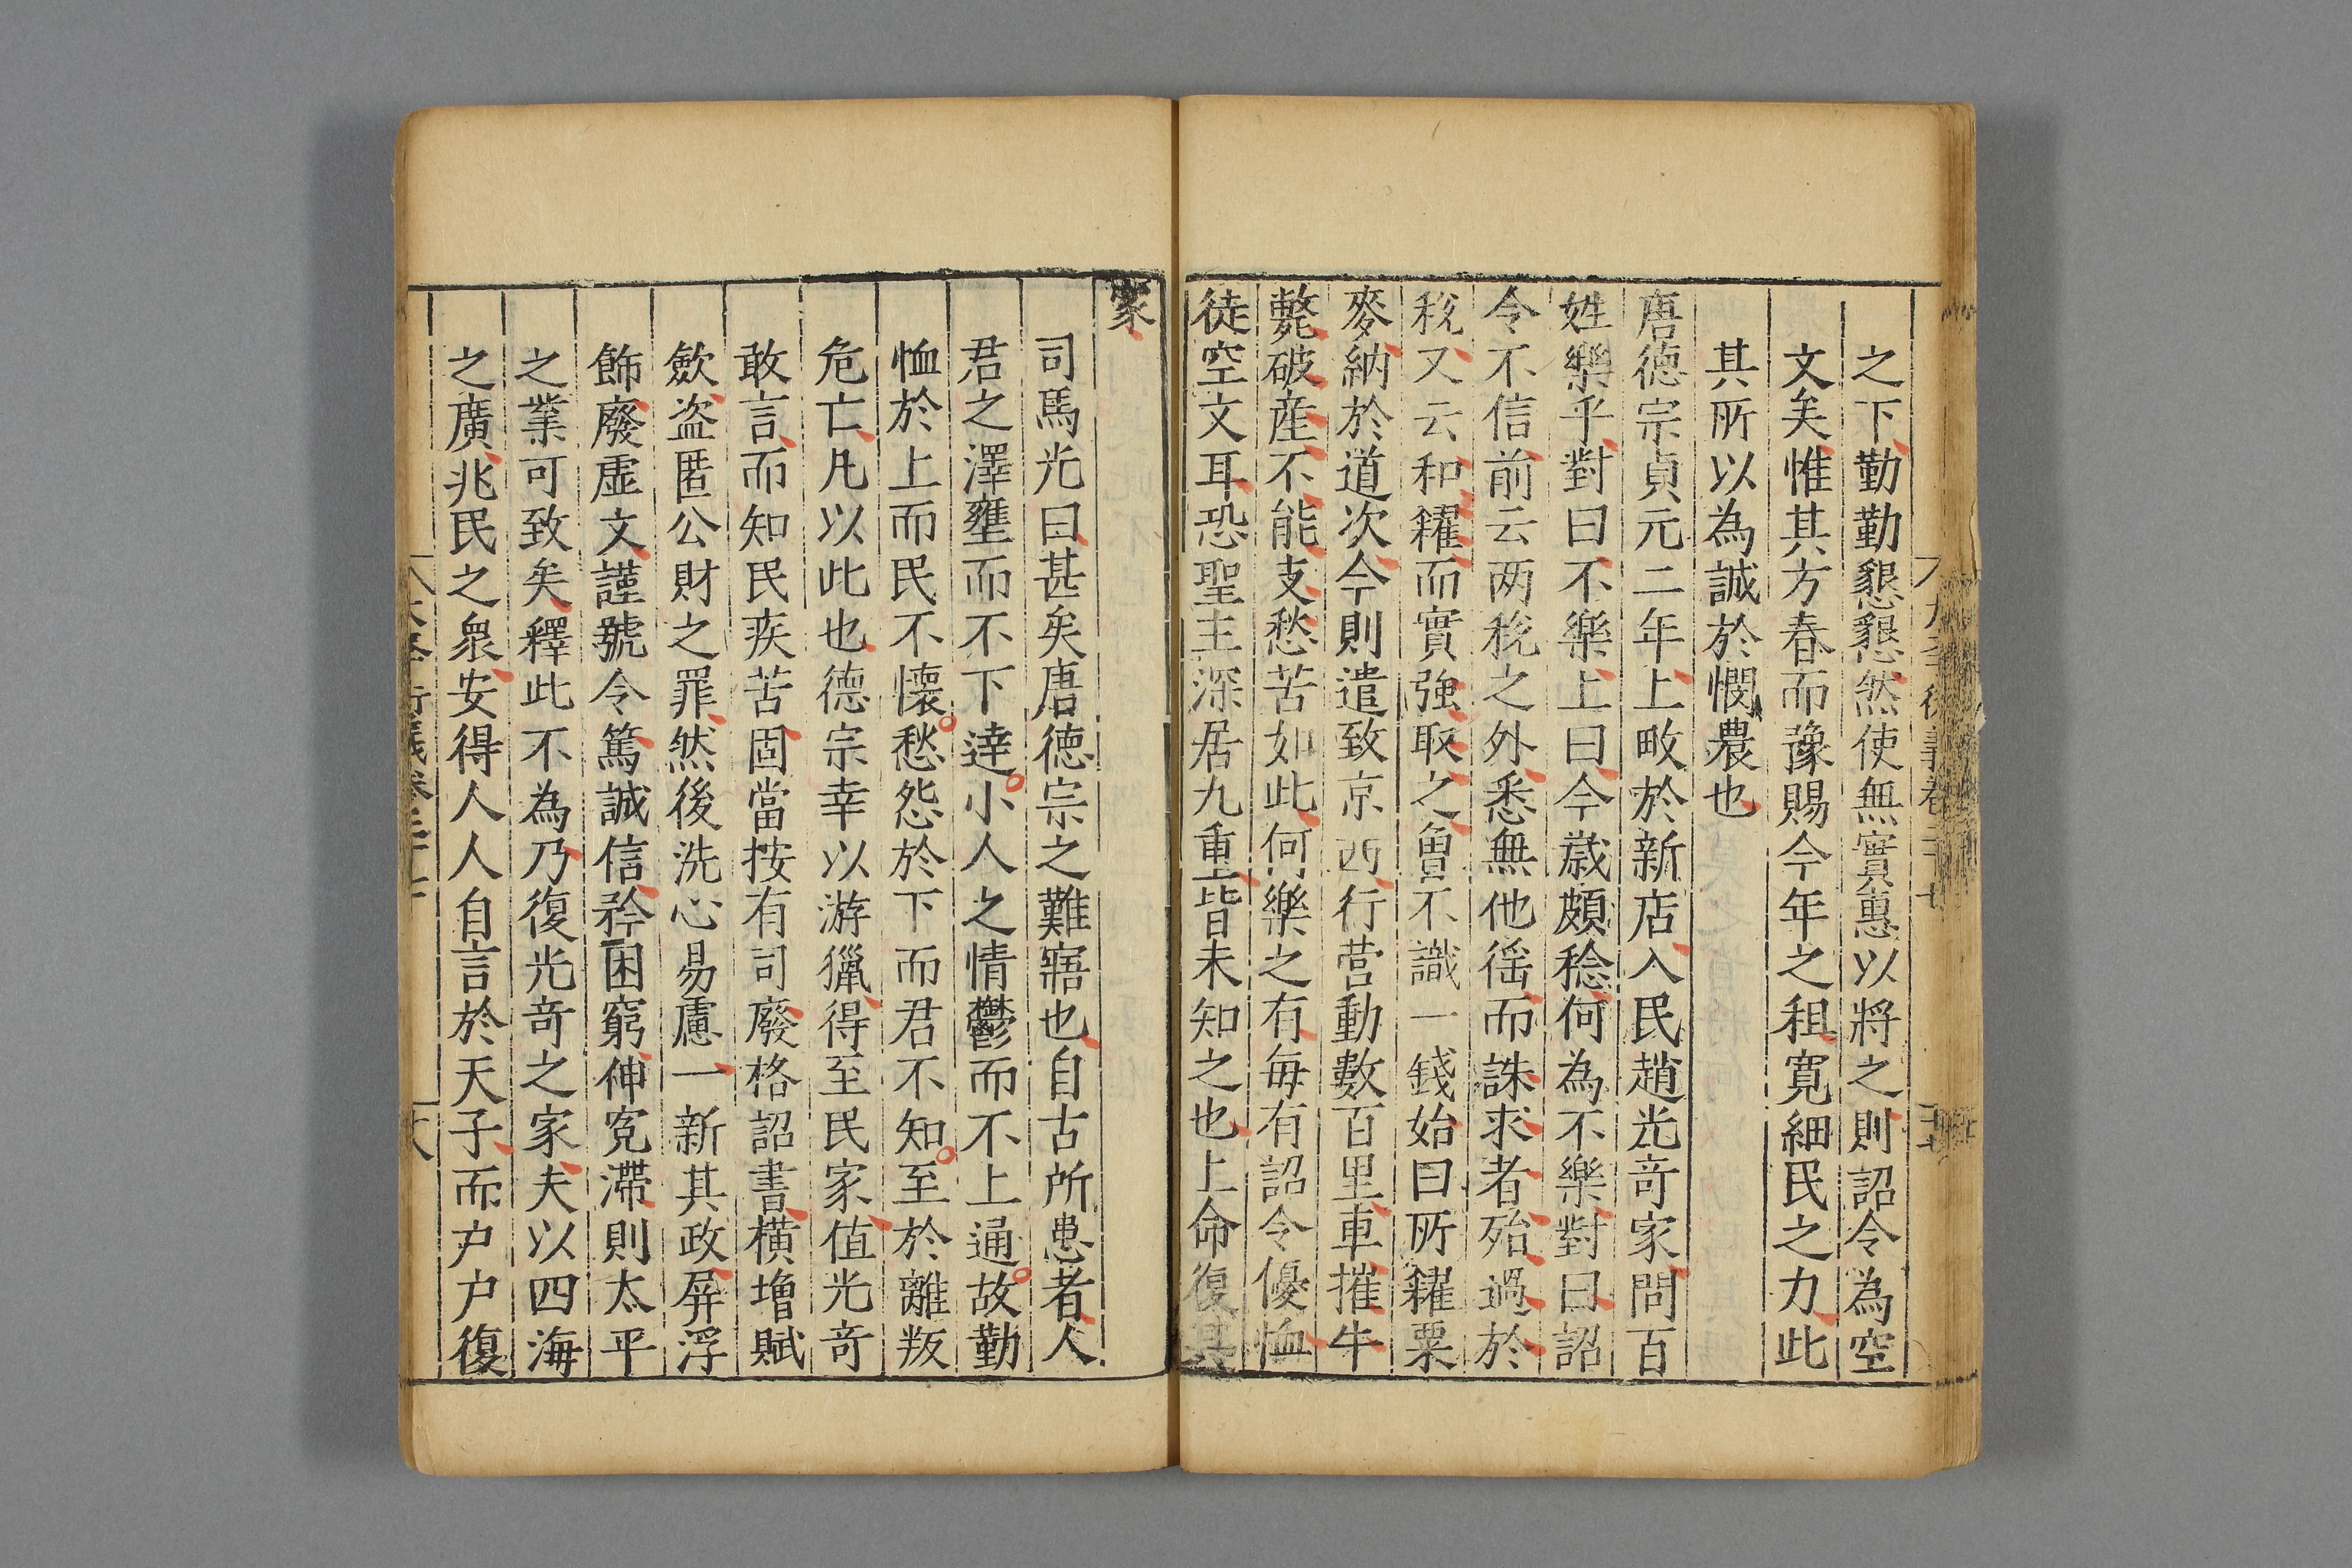 大學衍義卷二十七
之下勤勤懇懇然使無實惠以將之則詔令為空
文矣惟其方春而豫賜今年之租寬細民之力此
其所以為誠於憫農也
唐德宗貞元二年上畋於新店入民趙光竒家問百
姓樂乎對曰不樂上曰今歳頗稔何為不樂對曰詔
令不信前云两稅之外悉無他徭而誅求者殆過於
稅又云和糴而實強取之曽不識一錢始曰所糴粟
麥納於道次今則遣致京西行营動數百里車摧牛
斃破産不能支愁苦如此何樂之有每有詔令優恤
徒空文耳恐聖主深居九重皆未知之也上命復其
家
司馬光曰甚矣唐德宗之難寤也自古所患者人
君之澤壅而不下達小人之情鬱而不上通故勤
恤於上而民不懷愁怨於下而君不知至於離叛
危亡凡以此也德宗幸以游獵得至民家值光竒
敢言而知民疾苦固當按有司廢格詔書横増賦
歛盗匿公財之罪然後洗心易慮一新其政屏浮
飾廢虚文謹號令篤誠信矜困窮伸寃滯則太平
之業可致矣釋此不為乃復光竒之家夫以四海
之廣兆民之衆安得人人自言於天子而户户復